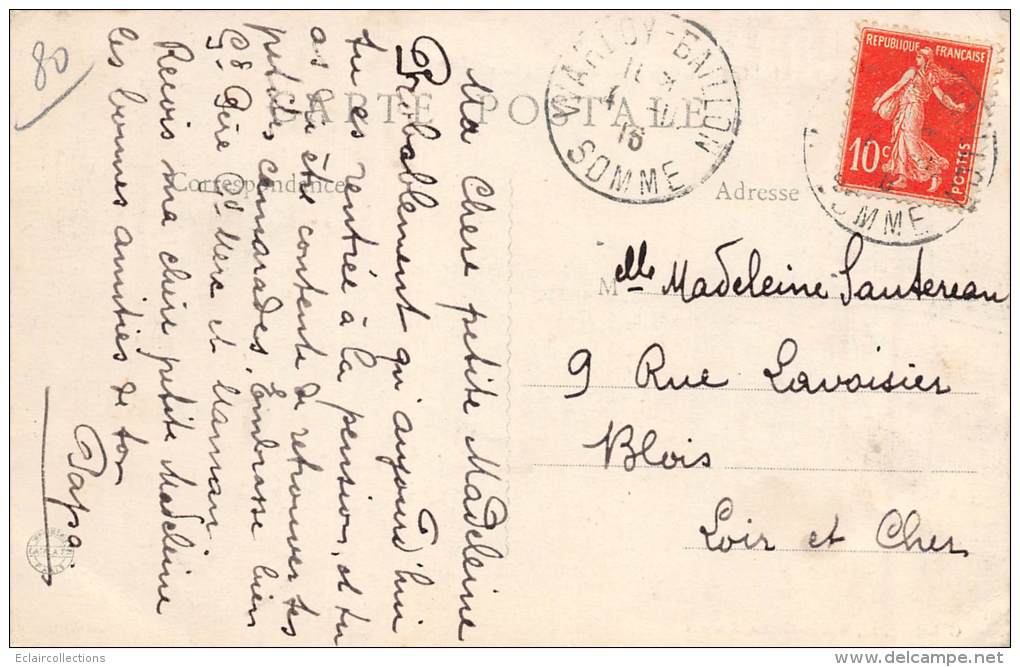 80
CARTE POSTALE
Correspondance
Adresse
WARLOY-BAILLON
SOMME
RÉPUBLIQUE FRANÇAISE
10c
POSTES
OMME
Ma Chere petite Madeleine
Probablement qu'aujourd'hui
tu es rentrée à la pension, et tu
as dû été contente de retrouver tes
petites camarades. Embrasse bien
Gd Père Gd Mère et Maman
Recois ma chère petite Madeleine
les bonnes amitiés de ton
Papa
Melle Madeleine Sautereau
9 Rue Lavoisier
Blois
Loir et Cher
Eclaircollections
delcampe.net